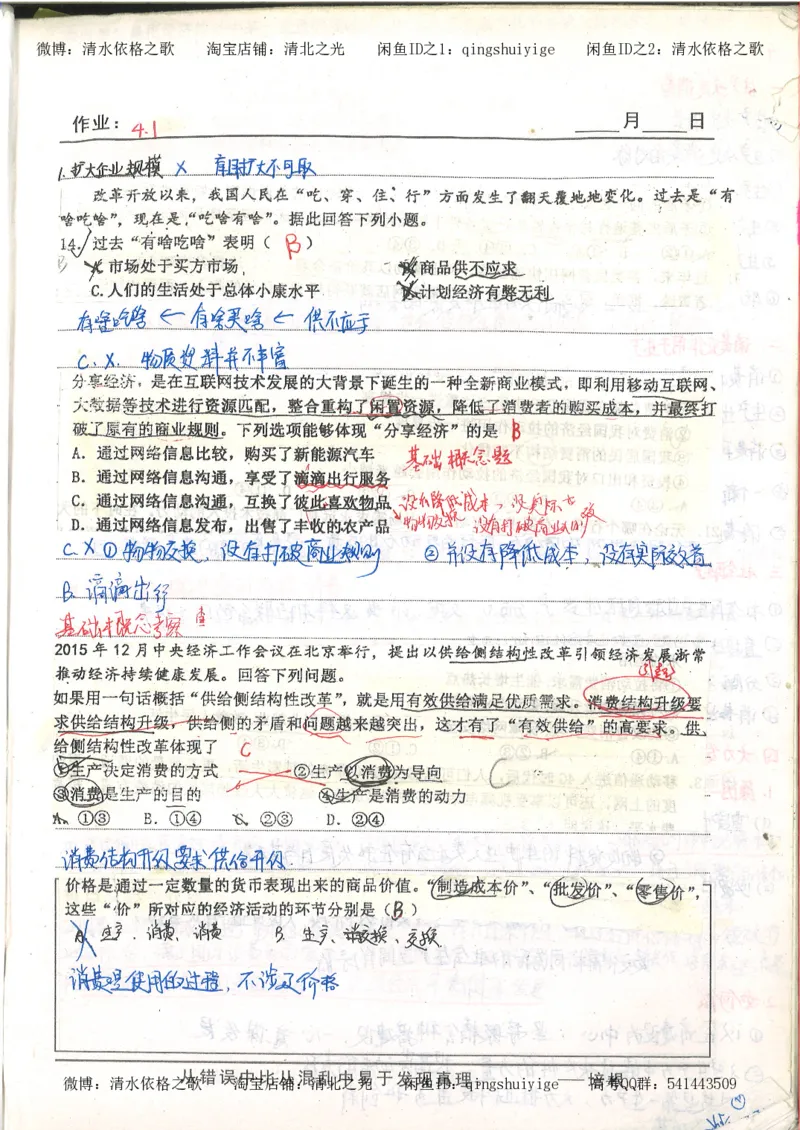 微博：清水依格之歌 淘宝店铺：清北之光 闲鱼ID之1：qingshuiyige 闲鱼ID之2：清水依格之歌
作业：4.1 ____月____日
1.扩大企业规模 × 盲目扩大不可取
改革开放以来，我国人民在“吃、穿、住、行”方面发生了翻天覆地地变化。过去是“有
啥吃啥”，现在是，“吃啥有啥”。据此回答下列小题。
14.过去“有啥吃啥”表明（ B ）
B
A.市场处于买方市场 B.商品供不应求
C.人们的生活处于总体小康水平 D.计划经济有弊无利
有啥吃啥 ← 有啥买啥 ← 供不应于
C.×. 物质资料并不丰富
分享经济，是在互联网技术发展的大背景下诞生的一种全新商业模式，即利用移动互联网、
大数据等技术进行资源匹配，整合重构了闲置资源，降低了消费者的购买成本，并最终打
破了原有的商业规则。下列选项能够体现“分享经济”的是 B
A．通过网络信息比较，购买了新能源汽车
基础概念题
B．通过网络信息沟通，享受了滴滴出行服务
C．通过网络信息沟通，互换了彼此喜欢物品
没有降低成本，没实际
D．通过网络信息发布，出售了丰收的农产品
物物交换 没有打破商业规则
C.×①物物交换，没有打破商业规则 ②并没有降低成本，没有实际效益
B.滴滴出行
基础概念考察
2015年12月中央经济工作会议在北京举行，提出以供给侧结构性改革引领经济发展新常
推动经济持续健康发展。回答下列问题。
引起
如果用一句话概括“供给侧结构性改革”，就是用有效供给满足优质需求。消费结构升级要
求供给结构升级，供给侧的矛盾和问题越来越突出，这才有了“有效供给”的高要求。供、
给侧结构性改革体现了 C
①生产决定消费的方式 ②生产以消费为导向
③消费是生产的目的 ④生产是消费的动力
A．①③ B．①④ C．②③ D．②④
消费结构升级要求供给升级
价格是通过一定数量的货币表现出来的商品价值。“制造成本价”、“批发价”、“零售价”，
这些“价”所对应的经济活动的环节分别是（B）
A.生产、消费、消费 B.生产、交换、交换
消费是使用的过程，不涉及价格
从错误中比从混乱中易于发现真理 ——培根
微博：清水依格之歌 淘宝店铺：清北之光 闲鱼ID：qingshuiyige 高考QQ群：541443509